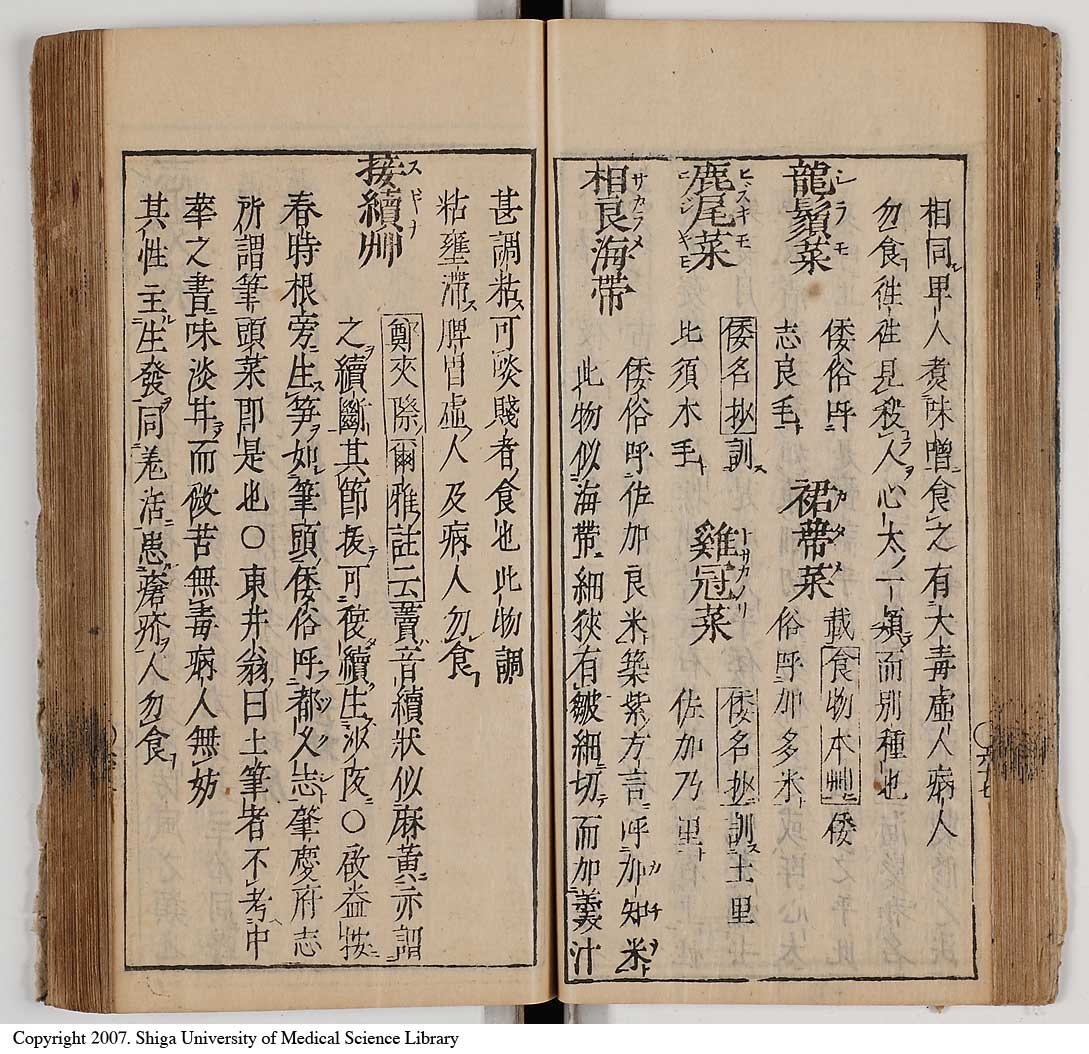 相同甲人煮味噌食之有大毒虛人病人
勿食徃徃見殺人心太一類而別種也
龍鬚菜 倭俗呼志良毛 裙帶菜 載食物本艸倭俗呼加多米
鹿尾菜 倭名抄訓比須木毛 雞冠菜 倭名抄訓土里佐加乃里
相良海帶 倭俗呼佐加良米築紫方言呼加知米
此物似海帶細狹有皺細切而加羹汁
甚調粘可啖賤者食也此物調
粘壅滯脾胃虛人及病人勿食
接續艸 鄭夾漈爾雅註云藚音續狀似麻黃亦謂
之續斷其節拔可復續生沙
春時根旁生笋如筆頭倭俗呼都久志肇慶府志
所謂筆頭菜即是也○東井翁曰土筆者不考中
華之書味淡甘而微苦無毒病人無妨
其性主生發同羗活患瘡疥人勿食
Copyright 2007. Shiga University of Medical Science Library